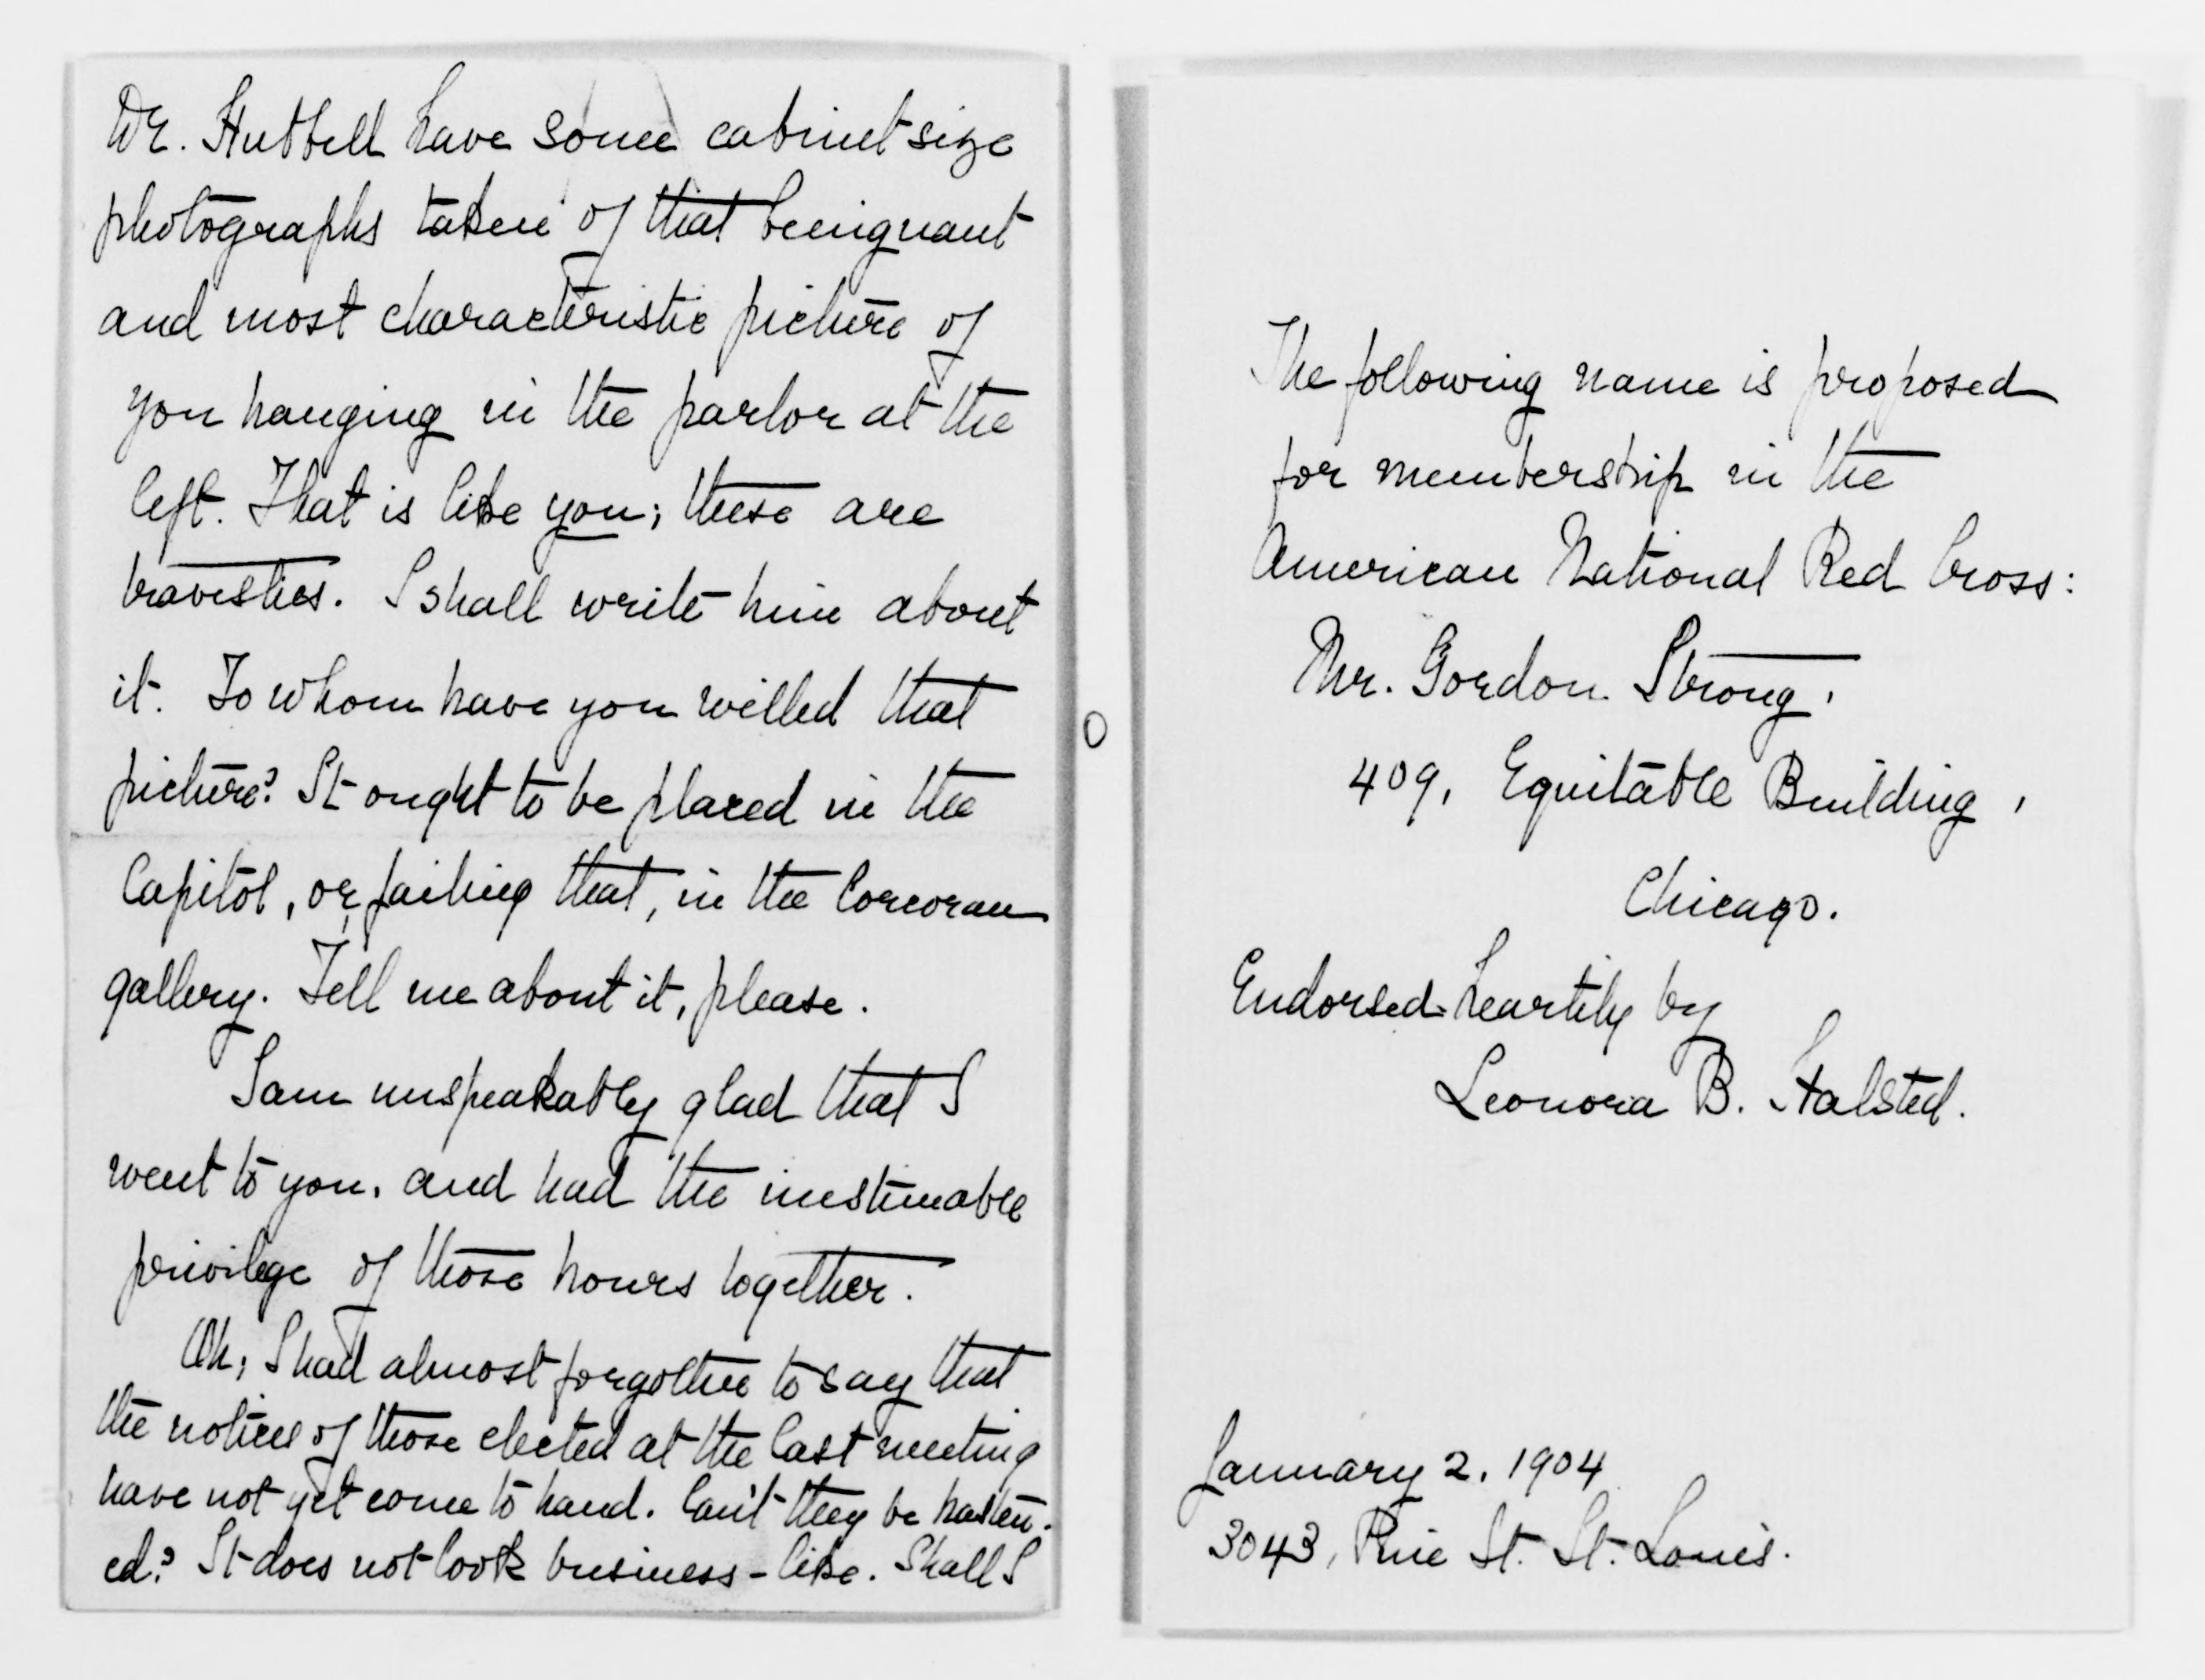 Dr. Hubbell have some cabinet size
photographs taken of that benignant
and most characteristic picture of
you hanging in the parlor at the
left. That is like you; these are
travesties. I shall write him about
it. To whom have you willed that
picture? It ought to be placed in the
Capitol, or, failing that, in the Corcoran
gallery. Tell me about it, please.
I am unspeakably glad that I
went to you, and had the inestimable
privilege of those hours together.
Oh, I had almost forgotten to say that
the notices of those elected at the last meeting
have not yet come to hand. Can't they be hasten-
ed? It does not look business-like. Shall I
The following name is proposed
for membership in the
American National Red Cross:
Mr. Gordon Strong,
409, Equitable Building,
Chicago.
Endorsed heartily by
Leonora B. Halsted.
January 2, 1904
3043, Pine St. St. Louis.